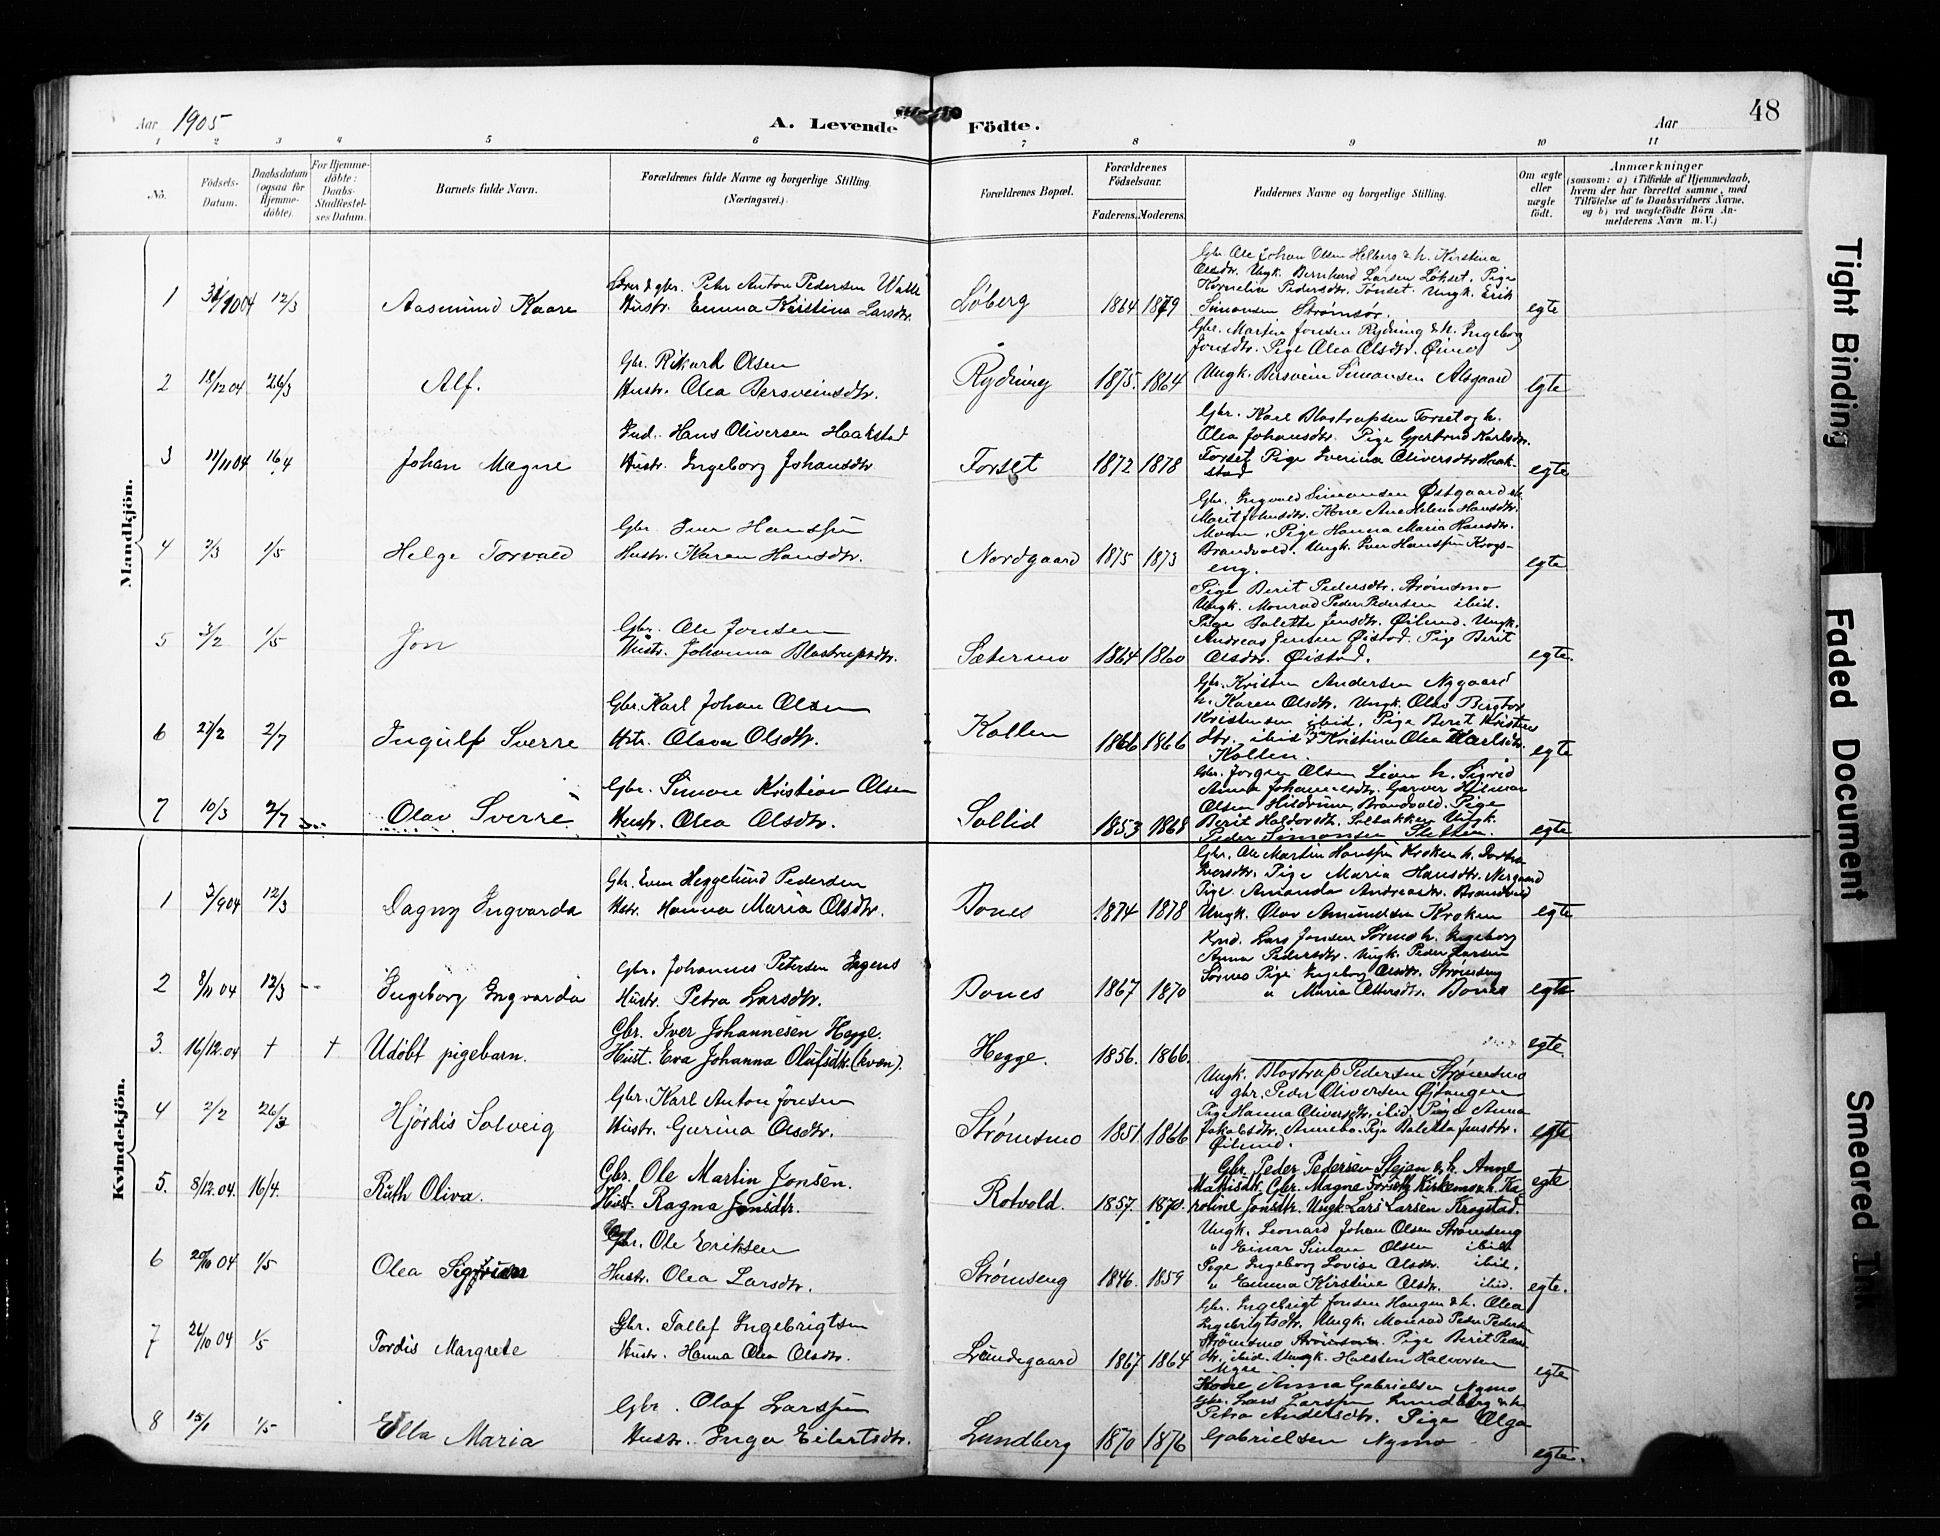 Aar 1905
A. Levende Födte.
Aar
48
1 2 3 4 5 6 7 8 9 10 11
No.
Födsels-Datum.
Daabsdatum (ogsaa for Hjemmedöbte).
For Hjemmedöbte: Daabs-Stadfæstelses Datum.
Barnets fulde Navn.
Forældrenes fulde Navne og borgerlige Stilling (Næringsvei.)
Forældrenes Bopæl.
Forældrenes Födselsaar.
Faderens. Moderens.
Faddernes Navne og borgerlige Stilling.
Om ægte eller uægte födt.
Anmærkninger
(saasom: a) i Tilfælde af Hjemmedaab, hvem der har forrettet samme, med Tilföielse af to Daabsvidners Navne, og b) ved uægtefödte Börn Anmelderens Navn m. V.)
Mandkjön.
1 12/3 Aasmund Kaare
Petr Anton Pedersen
Hustr. Emma Kristina Larsdtr.
Løberg 1864 1879
Gbr. Ole Johan Olsen Helberg & h. Kirstina
Olsdtr. Ungk. Bernhard Larsen Løkset. Pige
Kornelia Pedersdtr. Tønset. Ungk. Erik
Simonsen Strømsør.
egte
2 18/12 04 26/3 Alf.
Gbr. Rikard Olsen
Hustr. Olea Bersveinsdtr.
Rydning 1875. 1864
Gbr. Martin Jonsen Rydning & h. Ingeborg
Jonsdtr. Pige Olea Olsdtr. Øimo
Ungk. Bersvein Simonsen Alsgaard
egte
3 11/11 04 16/4 Johan Magne
Ind. Hans Oliversen Haakstad
Hustr. Ingeborg Johansdtr
Forset 1872 1878
Gbr. Karl Blostrupsen Forset og h.
Olea Johansdtr. Pige Gjertrud Karlsdtr.
Forset Pige Iverina Oliversdtr Haak-
stad
egte
4 2/3 1/5 Helge Torvald
Gbr. Iver Hanssen
Hustr. Karen Hansdtr.
Nordgaard 1875 1873
Gbr. Ingvald Simonsen Østgaard
Marit Johnsdtr. Kone Ane Helena Hansdtr.
Moen, Pige Hanna Maria Hansdtr.
Brandvold. Ungk. Iver Hanssen Krogs-
eng.
egte
5 3/2 1/5 Jon
Gbr. Ole Jonsen
Hustr. Johanna Blostrupsdtr.
Sætermo 1864 1860
Pige Berit Pedersdtr. Strømsmo
Ungk. Monrad Peder Pedersen ibid.
Pige Dalette Jensdtr. Øilund. Ungk.
Andreas Jensen Øistad. Pige Berit
Olsdtr. Øistad.
egte.
6 27/2 2/7 Ingulf Sverre
Gbr. Karl Johan Olsen
Hstr. Olava Olsdtr.
Kollen 1866 1866
Gbr. Kristen Andersen Nygaard
h. Karen Olsdtr. Ungk. Olaf Bergtor
Kristensen ibid. Pige Berit Kristens
dtr. ibid Kristina Olea Karlsdtr.
Kollen.
egte
7 10/3 2/7 Olav Sverre
Gbr. Simon Kristian Olsen
Hustr. Olea Olsdtr.
Sollid 1853 1868
Gbr. Jørgen Olsen Lien h. Sigrid
Anna Johannesdtr. Garver Hilmar
Olsen Hildrum, Brandvold. Pige
Berit Haldorsdtr. Solbakken Ungk.
Peder Simonsen Sletten.
egte
Kvindekjön.
1 3/9 04 12/3 Dagny Ingvarda
Gbr. Even Heggelund Pedersen
Hstr. Hanna Maria Olsdtr.
Bones 1874 1878
Gbr. Ole Martin Hanssen Kroken h. Dorthea
Iversdtr. Pige Maria Hansdtr. Nergaard
Pige Amanda Andreasdtr. Brandvold
Ungk. Olav Amundsen Kroken
egte
2 8/11 04 12/3 Ingeborg Ingvarda
Gbr. Johannes Petersen
Hustr. Petra Larsdtr.
Bones 1867 1870
Lars Jonsen Sørmo h. Ingeborg
Anna Pedersdtr. Ungk. Peder Larsen
Sørmo Pige Ingeborg Olsdtr. Strømseng
" Maria Ottersdtr. Bones
egte
3. 16/12.04 † † Udöbt pigebarn.
Gbr. Iver Johannesen Hegge.
Hust. Eva Johanna Olufsdtr. (kvæn).
Hegge. 1856. 1866.
egte.
4 2/2 26/3 Hjördis Solveig
Gbr. Karl Anton Jonsen
Hustr. Gurina Olsdtr.
Strømsmo 1851. 1866
Ungk. Blostrup Pedersen Strømsmo
" gbr. Peder Oliversen Øitangen
Pige Hanna Oliversdtr. ibid. Pige Anna
Jakobsdtr. Annebo. Pige Dalette Jensdtr.
Øilund.
egte
5. 8/12.04. 16/4. Ruth Oliva.
Gbr. Ole Martin Jonsen.
Hust. Ragna Jonsdtr.
Rotvold. 1857. 1870.
Gbr. Peder Pedersen Steien & h. Anne
Mathisdtr. Gbr. Magne Kirkemo & h. Ka-
roline Jonsdtr. Ungk. Lars Larsen Krogstad.
egte.
6 20/10 04 1/5 Olea
Gbr. Ole Eriksen
Hustr. Olea Larsdtr.
Strømseng 1846. 1859
Ungk. Leonard Johan Olsen Strømseng
" Einar Simon Olsen ibid
Pige Ingeborg Lovise Olsdtr. ibid.
" Emma Kirstine Olsdtr. ibid.
egte.
7 21/10 04 1/5 Tordis Margrete
Gbr. Tollef Ingebrigtsen
Hustr. Hanna Olea Olsdtr.
Lundegaard 1867 1864
Gbr. Ingebrigt Jonsen Haugen & h. Olea
Ingebrigtsdtr. Ungk. Monrad Peder Pedersen
Strømsmo Pige Berit Peders
dtr. ibid. Ungk. Halsten Halvorsen
Moe
egte
8 15/1 1/5 Ella Maria
Gbr. Olaf Larssen
Hustr. Inga Eilertsdtr.
Lundberg 1870 1876
Kone Anna Gabrielsen Nymo
Gbr. Lars Larssen Lundberg & h.
Petra Andersdtr. Pige Olga
Gabrielsen Nymo
egte.
Tight Binding
Faded Document
Smeared Ink